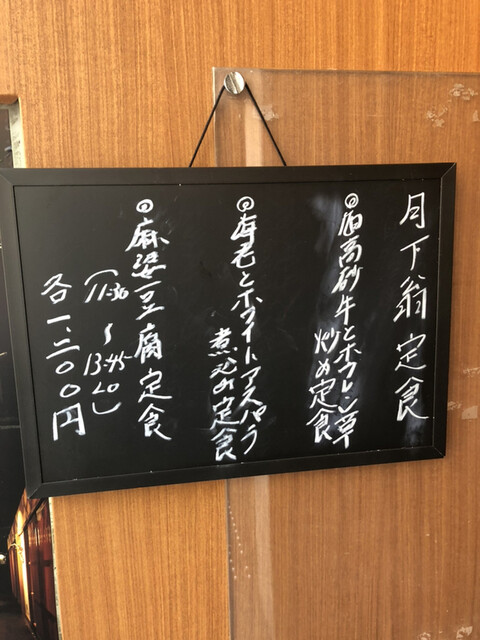 月下翁定食
◎宿高砂牛とホウレン草
炒め定食
◎海老とホワイトアスパラ
煮込み定食
◎麻婆豆腐定食
(11:30〜13:45LO)
各一、二〇〇円